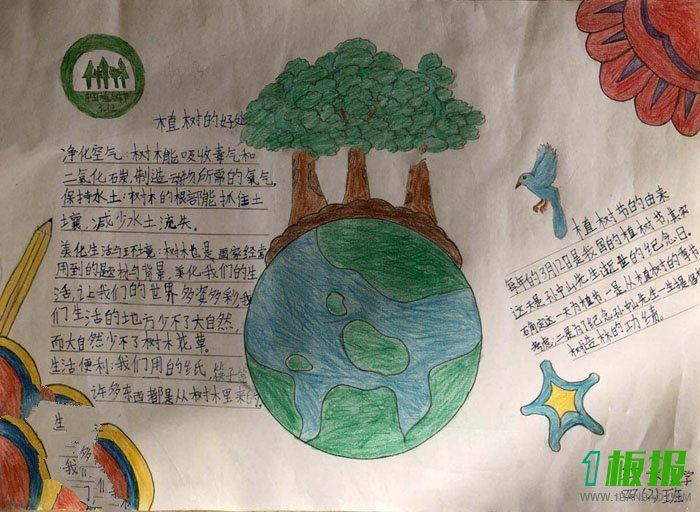 中国植树节
3.12
植树的好处
净化空气:树木能吸收毒气和
二氧化石炭,制造动物所需的氧气
保持水土:树木的根部能抓住土
壤,减少水土流失。
美化生活与环境:树木也是画家经常
用到的题材与背景,美化我们的生
活,让我们的世界多姿多彩,我
们生活的地方少不了大自然,
而大自然少不了树木花草。
生活便利:我们用的纸、筷子等
许多东西都是从树木里来的。
生
多
我
们
植树节的由来
每年的3月12日是我国的植树节,国家
这天是孙中山先生逝世的纪念日。
确定这一天为植树节,一是从植树的季节
考虑,二是为了纪念孙中山先生一生提倡
植树造林的功绩。
学
(2)班
1板报
WWW.1BANBAO.COM